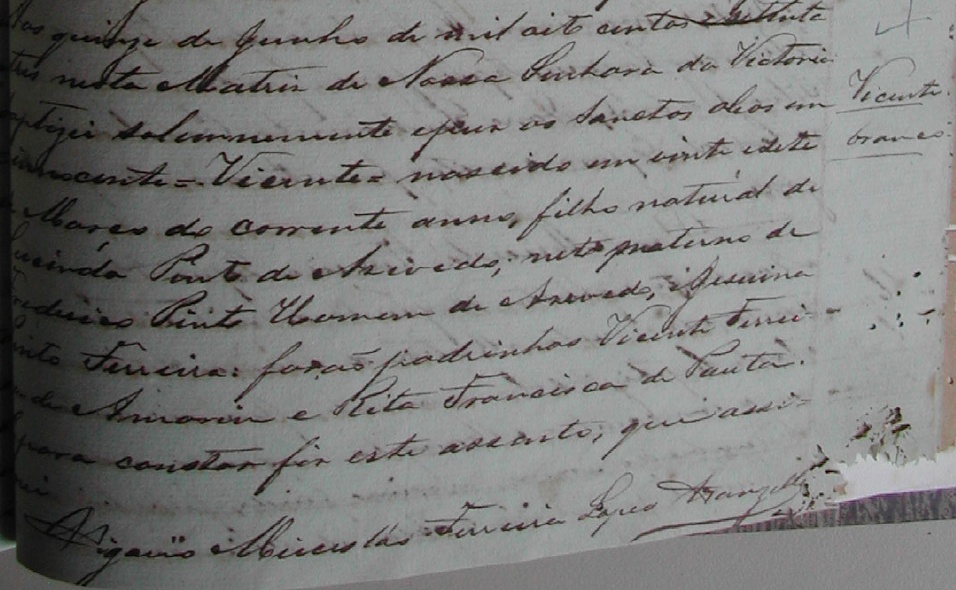 Aos quinze de Junho de mil oito centos e settenta
tres nesta Matriz de Nossa Senhora da Victoria
baptizei solemnemente e puz os Sanctos oleos em
innocente = Vicente = nascido em vinte e sete
de Março do corrente anno, filho natural de
Pinto de Azevedo, neto materno de
Pinto Homem de Azevedo, e
Pinto Ferreira: forão padrinhos Vicente Ferrei-
ra de Amorim e Rita Francisca de Paula.
E para constar fiz este assento, que assi-
nei
Vigario Ferreira Lopes
Vicente
branco